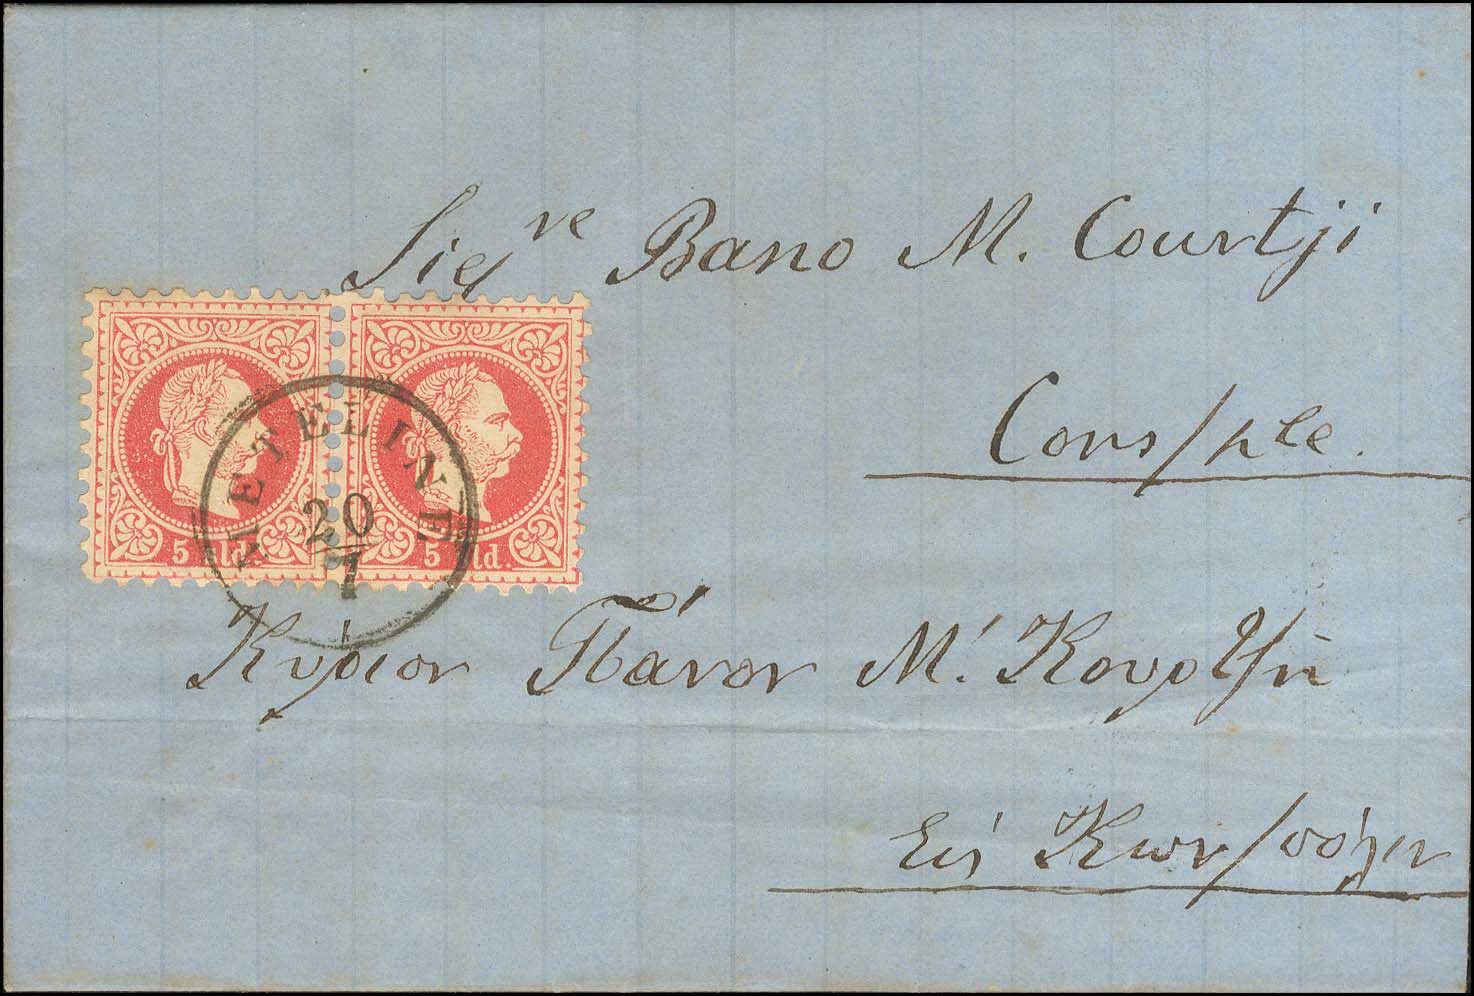 Sigre Bano M. Courtji
Cons/ple.
METELINE
20
7
5 sld.
5 sld.
Κύριον Πάνον Μ. Κουρτζῆ
Εἰς Κων/πόλιν